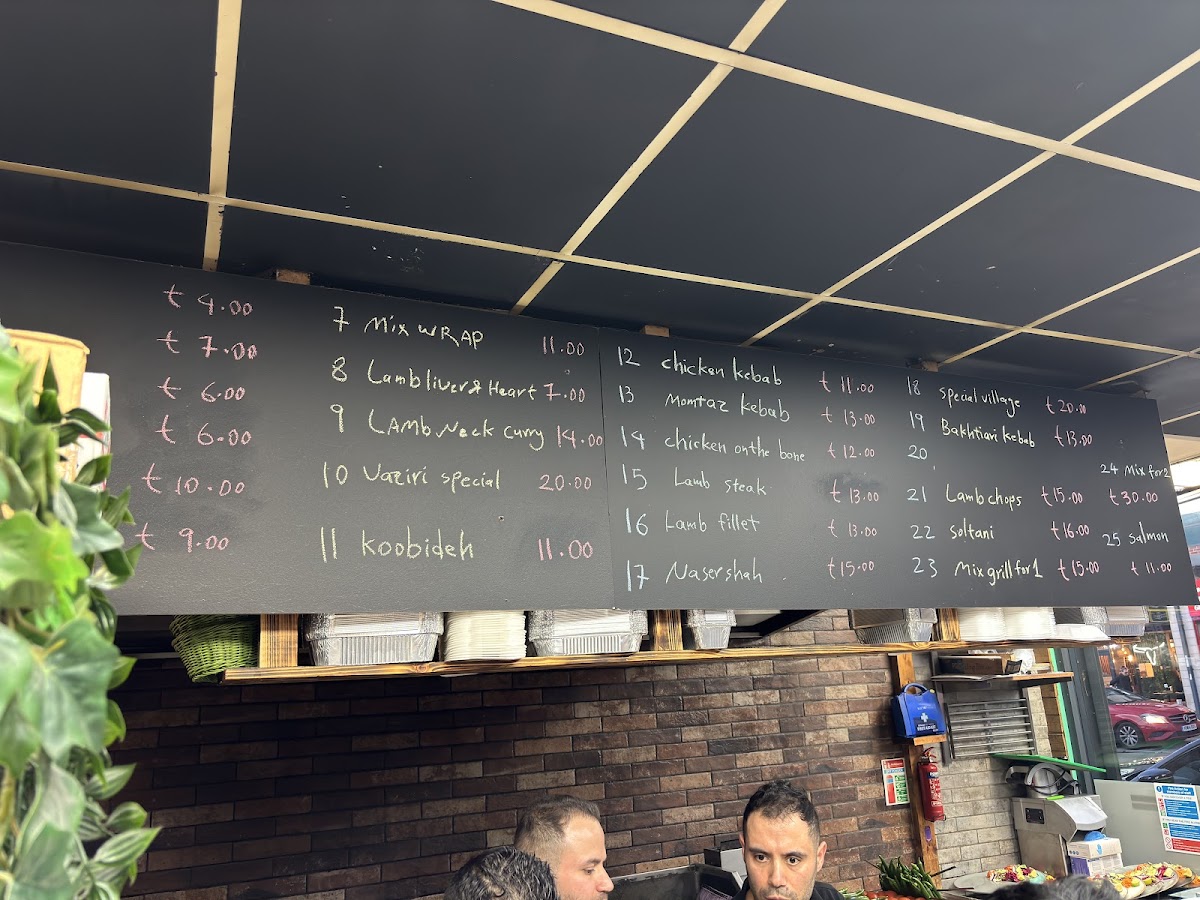 £ 4.00
£ 7.00
£ 6.00
£ 6.00
£ 10.00
£ 9.00
7 Mix WRAP 11.00
8 Lamb liver & Heart 7.00
9 LAMB Neck Curry 14.00
10 Vaziri special 20.00
11 Koobideh 11.00
12 chicken kebab £ 11.00
13 Momtaz kebab £ 13.00
14 chicken on the bone £ 12.00
15 Lamb steak £ 13.00
16 Lamb fillet £ 13.00
17 Naser shah £15.00
18 special village £ 20.00
19 Bakhtiari kebab £13.00
20
21 Lamb chops £15.00
22 Soltani £16.00
23 Mix grill for 1 £15.00
24 Mix for 2
£30.00
25 Salmon
£ 11.00